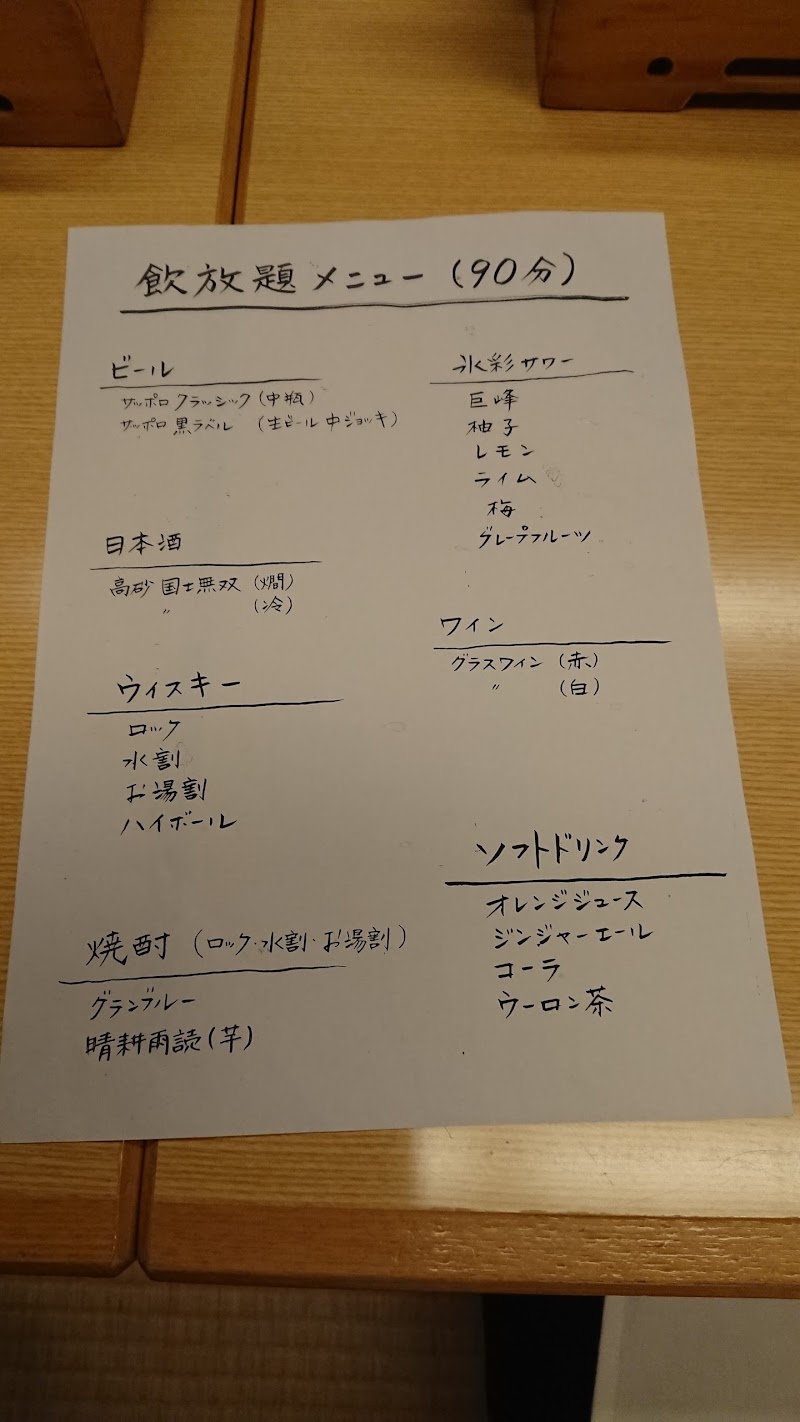 飲放題メニュー(90分)
ビール
サッポロ クラッシック(中瓶)
サッポロ 黒ラベル (生ビール 中ジョッキ)
日本酒
高砂 国士無双 (燗)
〃 (冷)
ウィスキー
ロック
水割
お湯割
ハイボール
焼酎 (ロック・水割・お湯割)
グランブルー
晴耕雨読(芋)
氷彩サワー
巨峰
柚子
レモン
ライム
梅
グレープフルーツ
ワイン
グラスワイン (赤)
〃 (白)
ソフトドリンク
オレンジジュース
ジンジャーエール
コーラ
ウーロン茶